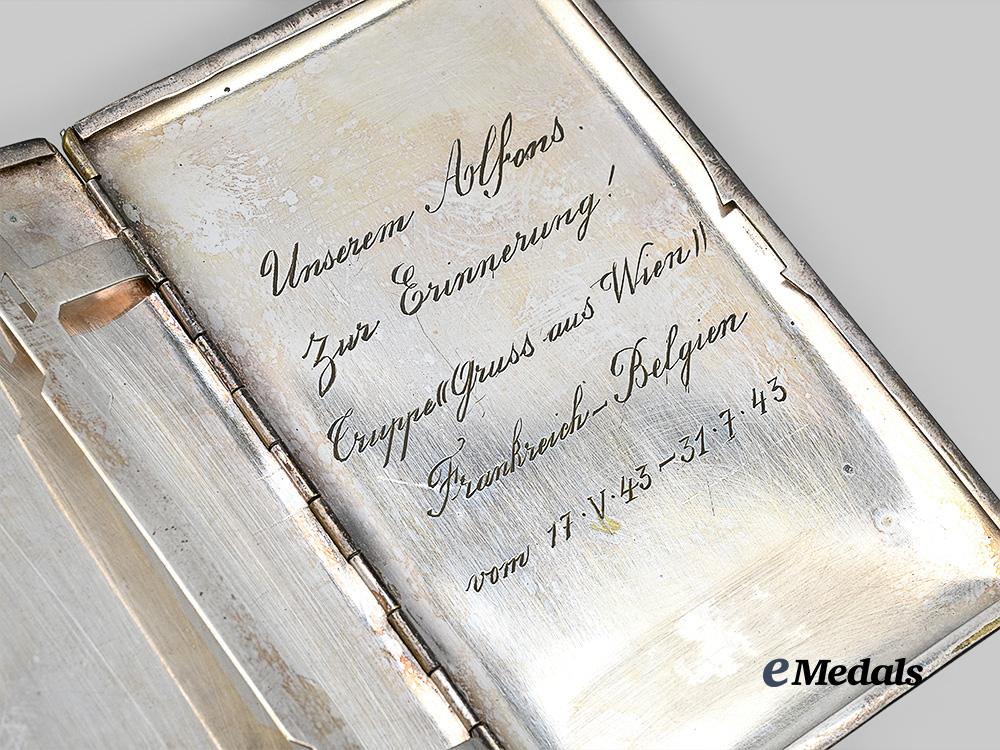 Unserem Alfons.
Zur Erinnerung!
Truppe "Gruss aus Wien"
Frankreich-Belgien
vom 17.V.43-31.7.43
eMedals